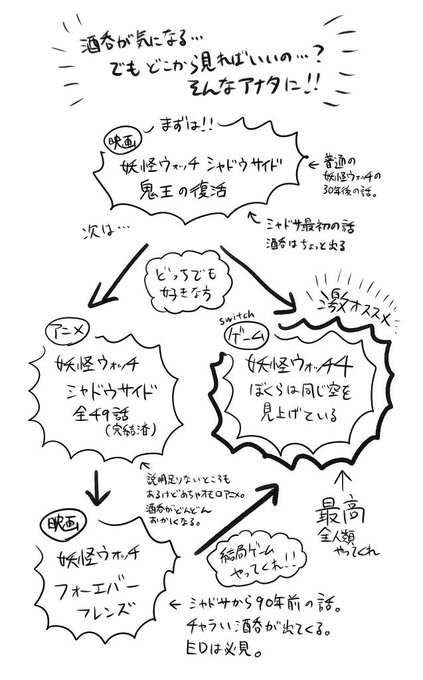 酒呑が気になる…
でもどこから見ればいいの…?
そんなアナタに!!
まずは!!
映画
妖怪ウォッチ シャドウサイド
鬼王の復活
普通の
妖怪ウォッチの
30年後の話。
シャドサ最初の話
酒呑はちょっと出る
次は…
どっちでも
好きな方
激オススメ
アニメ
妖怪ウォッチ
シャドウサイド
全49話
(完結済)
switch
ゲーム
妖怪ウォッチ4
ぼくらは同じ空を
見上げている
説明足りないところも
あるけどめちゃオモロアニメ。
酒呑がどんどん
おかしくなる。
最高
全人類
やってくれ
映画
妖怪ウォッチ
フォーエバー
フレンズ
結局ゲーム
やってくれ!!
シャドサから90年前の話。
チャラい酒呑が出てくる。
EDは必見。